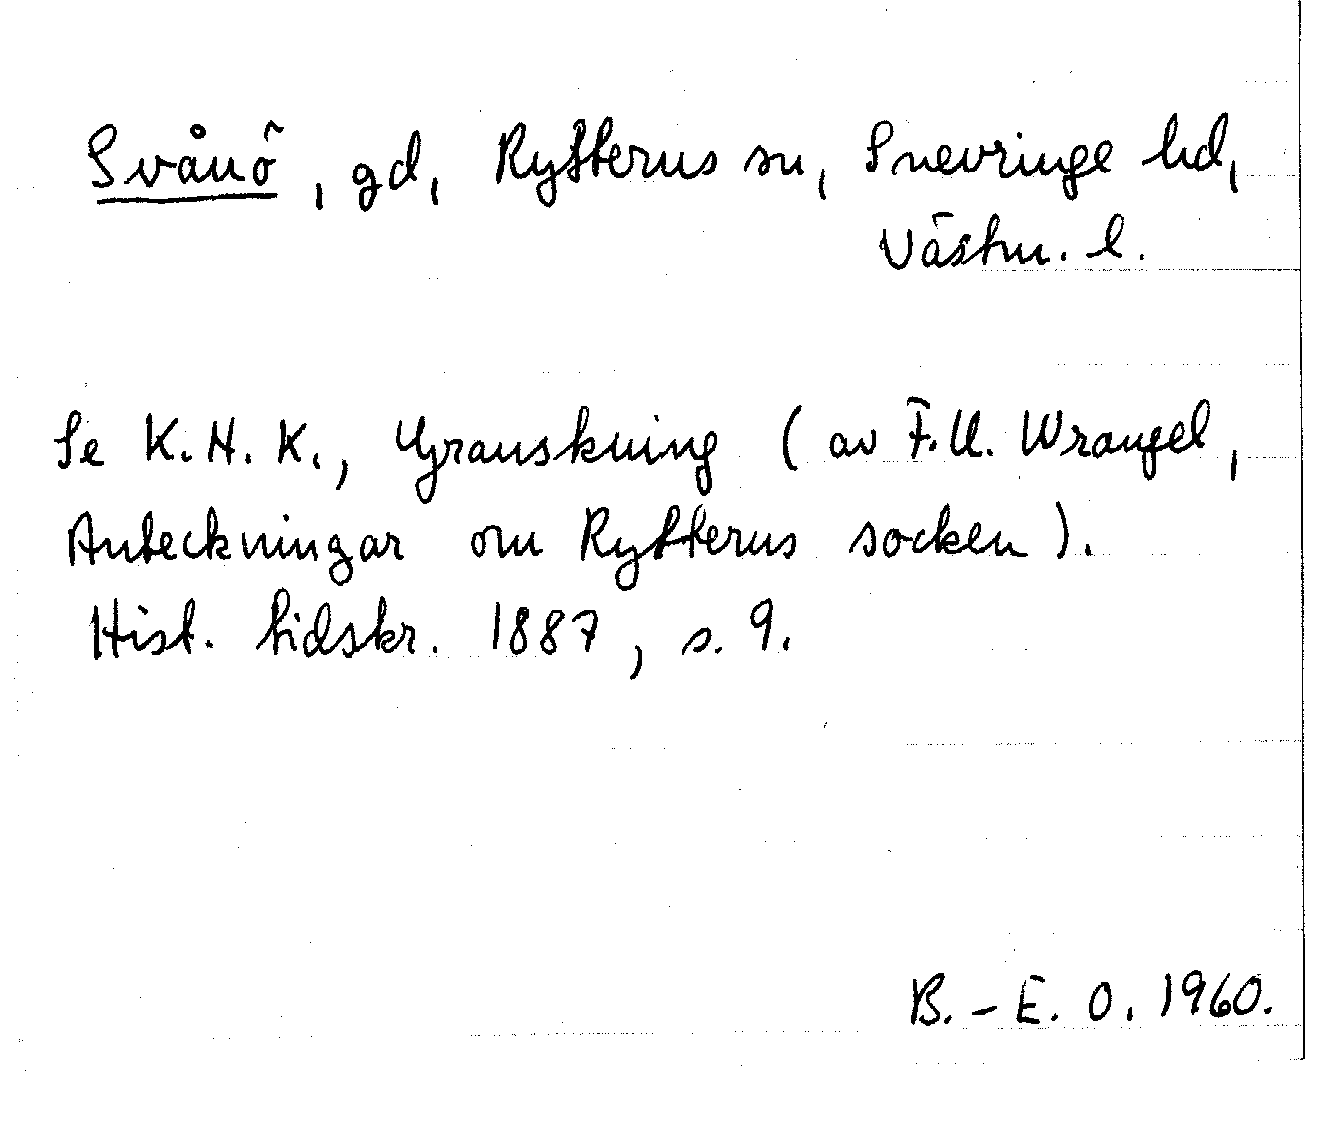 Svånö, gd, Rytterns sn, Snevringe hd,
Västm. l.
Se K. H. K., Granskning (av F. U. Wrangel,
Anteckningar om Rytterns socken).
Hist. tidskr. 1887, s. 9.
B.-E. O. 1960.